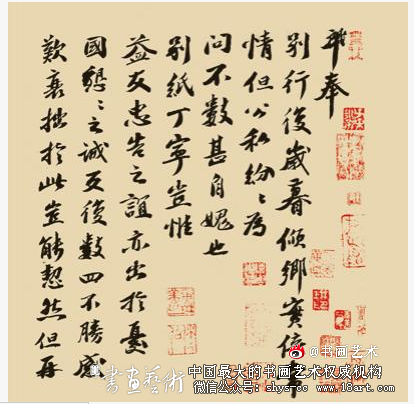 奉
別行後歲暮傾鄉實倍常
情但公私紛〻為
問不數甚自媿也
別紙丁寧豈惟
益友忠告之誼亦出於憂
國懇〻之誠反復數四不勝感
歎衰拙於此豈能恝然但再
@书画艺术
書畫藝術
中国最大的书画艺术权威机构
微信公众号:shys-cc www.18art.com